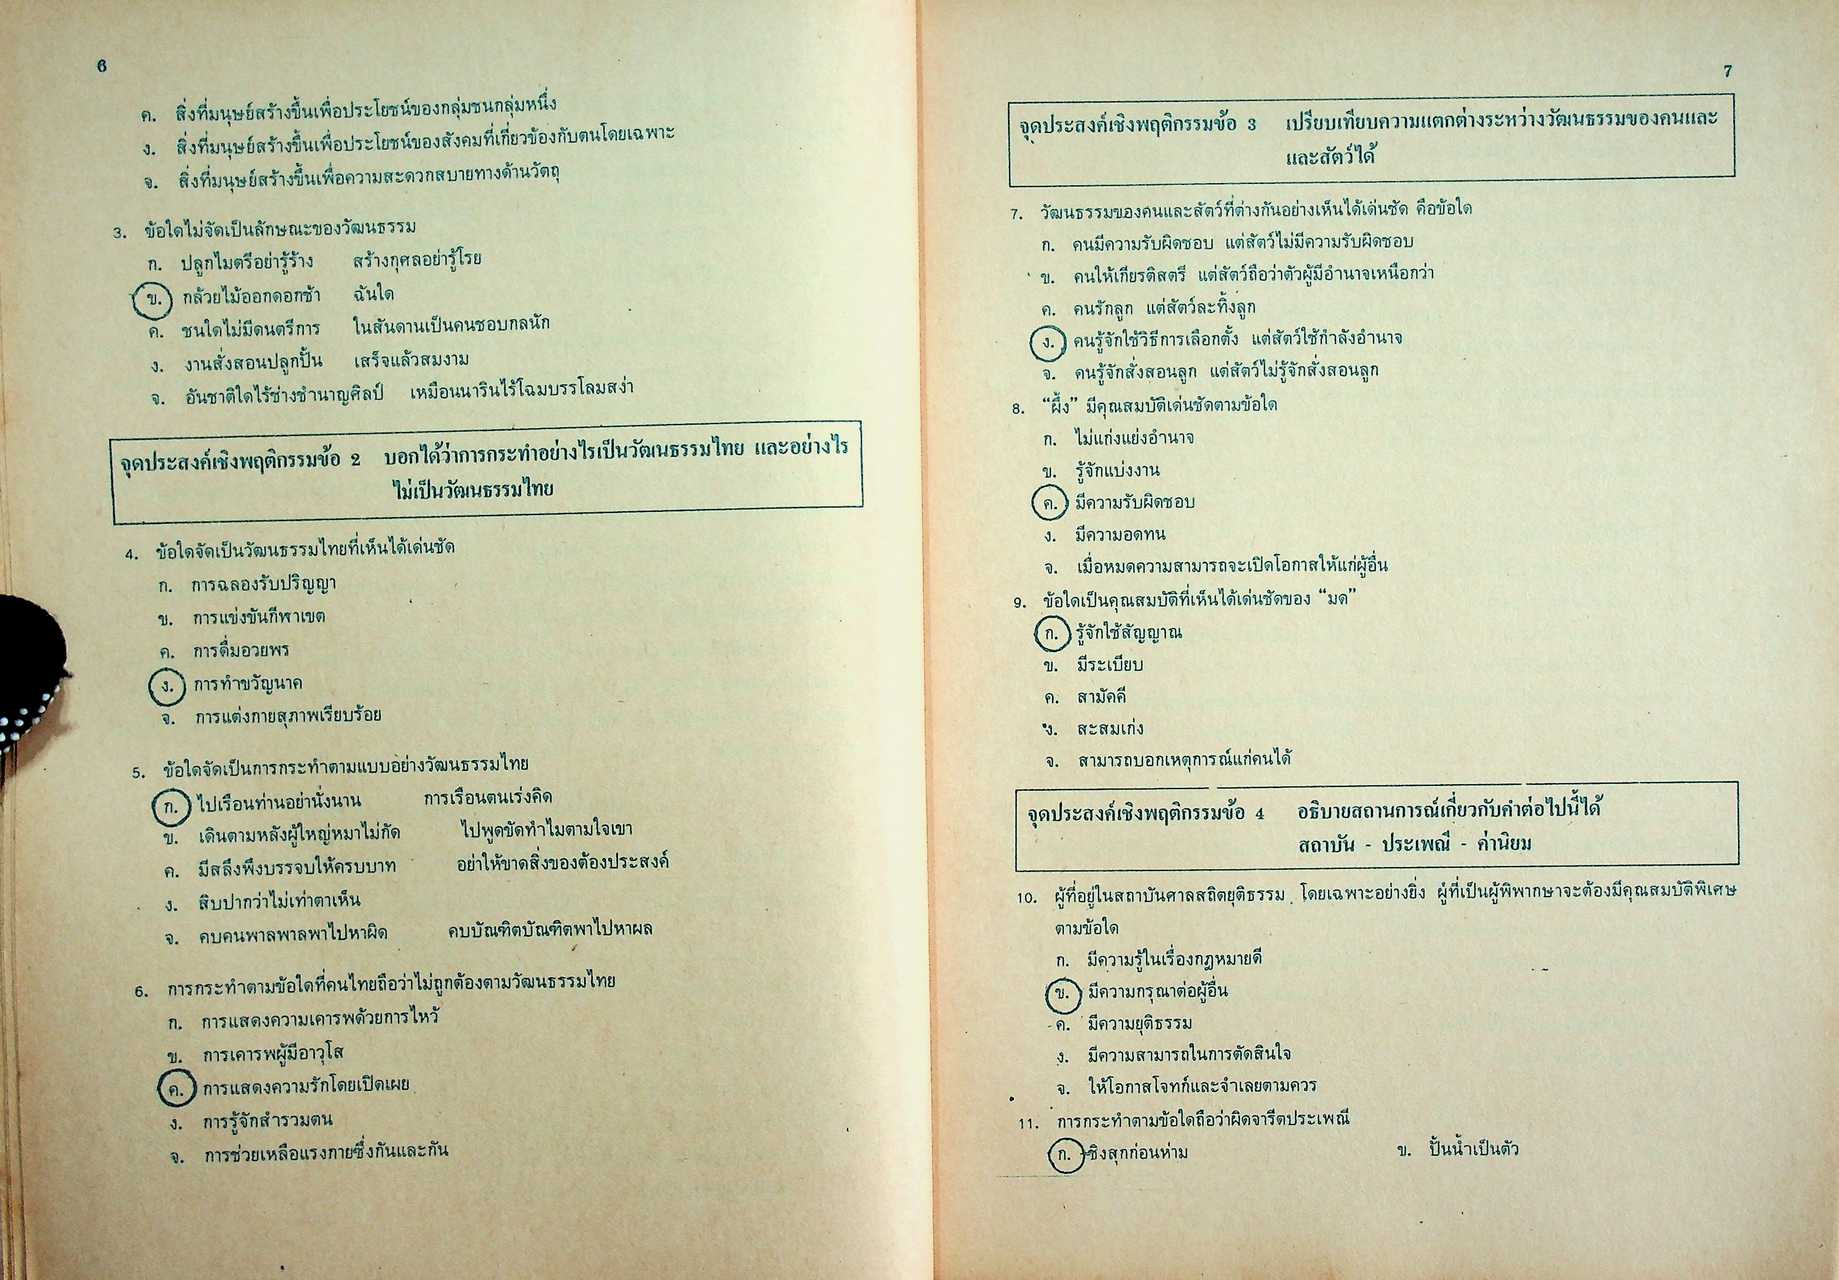 6
ค. สิ่งที่มนุษย์สร้างขึ้นเพื่อประโยชน์ของกลุ่มชนกลุ่มหนึ่ง
ง. สิ่งที่มนุษย์สร้างขึ้นเพื่อประโยชน์ของสังคมที่เกี่ยวข้องกับตนโดยเฉพาะ
จ. สิ่งที่มนุษย์สร้างขึ้นเพื่อความสะดวกสบายทางด้านวัตถุ
3. ข้อใดไม่จัดเป็นลักษณะของวัฒนธรรม
ก. ปลูกไมตรีอย่ารู้ร้าง สร้างกุศลอย่ารู้โรย
ข. กล้วยไม้ออกดอกช้า ฉันใด
ค. ชนใดไม่มีดนตรีการ ในสันดานเป็นคนชอบกลนัก
ง. งานสั่งสอนปลูกปั้น เสร็จแล้วสมงาม
จ. อันชาติใดไร้ช่างชำนาญศิลป์ เหมือนนารินไร้โฉมบรรโลมสง่า
จุดประสงค์เชิงพฤติกรรมข้อ 2 บอกได้ว่าการกระทำอย่างไรเป็นวัฒนธรรมไทย และอย่างไร
ไม่เป็นวัฒนธรรมไทย
4. ข้อใดจัดเป็นวัฒนธรรมไทยที่เห็นได้เด่นชัด
ก. การฉลองรับปริญญา
ข. การแข่งขันกีฬาเขต
ค. การดื่มอวยพร
ง. การทำขวัญนาค
จ. การแต่งกายสุภาพเรียบร้อย
5. ข้อใดจัดเป็นการกระทำตามแบบอย่างวัฒนธรรมไทย
ก. ไปเรือนท่านอย่านั่งนาน การเรือนตนเร่งคิด
ข. เดินตามหลังผู้ใหญ่หมาไม่กัด ไปพูดขัดทำไมตามใจเขา
ค. มีสลึงพึงบรรจบให้ครบบาท อย่าให้ขาดสิ่งของต้องประสงค์
ง. สิบปากว่าไม่เท่าตาเห็น
จ. คบคนพาลพาลพาไปหาผิด คบบัณฑิตบัณฑิตพาไปหาผล
6. การกระทำตามข้อใดที่คนไทยถือว่าไม่ถูกต้องตามวัฒนธรรมไทย
ก. การแสดงความเคารพด้วยการไหว้
ข. การเคารพผู้มีอาวุโส
ค. การแสดงความรักโดยเปิดเผย
ง. การรู้จักสำรวมตน
จ. การช่วยเหลือแรงกายซึ่งกันและกัน
7
จุดประสงค์เชิงพฤติกรรมข้อ 3 เปรียบเทียบความแตกต่างระหว่างวัฒนธรรมของคนและ
และสัตว์ได้
7. วัฒนธรรมของคนและสัตว์ที่ต่างกันอย่างเห็นได้เด่นชัด คือข้อใด
ก. คนมีความรับผิดชอบ แต่สัตว์ไม่มีความรับผิดชอบ
ข. คนให้เกียรติสตรี แต่สัตว์ถือว่าตัวผู้มีอำนาจเหนือกว่า
ค. คนรักลูก แต่สัตว์ละทิ้งลูก
ง. คนรู้จักใช้วิธีการเลือกตั้ง แต่สัตว์ใช้กำลังอำนาจ
จ. คนรู้จักสั่งสอนลูก แต่สัตว์ไม่รู้จักสั่งสอนลูก
8. “ผึ้ง” มีคุณสมบัติเด่นชัดตามข้อใด
ก. ไม่แก่งแย่งอำนาจ
ข. รู้จักแบ่งงาน
ค. มีความรับผิดชอบ
ง. มีความอดทน
จ. เมื่อหมดความสามารถจะเปิดโอกาสให้แก่ผู้อื่น
9. ข้อใดเป็นคุณสมบัติที่เห็นได้เด่นชัดของ “มด”
ก. รู้จักใช้สัญญาณ
ข. มีระเบียบ
ค. สามัคคี
ง. สะสมเก่ง
จ. สามารถบอกเหตุการณ์แก่คนได้
จุดประสงค์เชิงพฤติกรรมข้อ 4 อธิบายสถานการณ์เกี่ยวกับคำต่อไปนี้ได้
สถาบัน - ประเพณี - ค่านิยม
10. ผู้ที่อยู่ในสถาบันศาลสถิตยุติธรรม โดยเฉพาะอย่างยิ่ง ผู้ที่เป็นผู้พิพากษาจะต้องมีคุณสมบัติพิเศษ
ตามข้อใด
ก. มีความรู้ในเรื่องกฎหมายดี
ข. มีความกรุณาต่อผู้อื่น
ค. มีความยุติธรรม
ง. มีความสามารถในการตัดสินใจ
จ. ให้โอกาสโจทก์และจำเลยตามควร
11. การกระทำตามข้อใดถือว่าผิดจารีตประเพณี
ก. ชิงสุกก่อนห่าม ข. ปั้นน้ำเป็นตัว